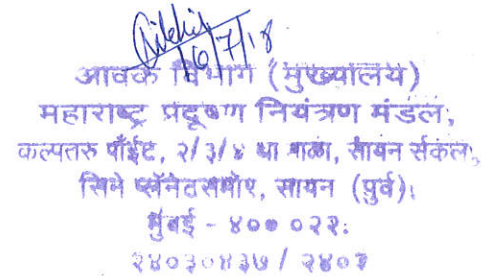 16/7/18
आवक विभाग (मुख्यालय)
महाराष्ट्र प्रदूषण नियंत्रण मंडल,
कल्पतरु पॉईंट, २/३/४ था माळा, सायन सर्कल,
सिने प्लॅनेटसमोर, सायन (पुर्व),
मुंबई - ४०० ०२२.
२४०२०४३७ / २४०१